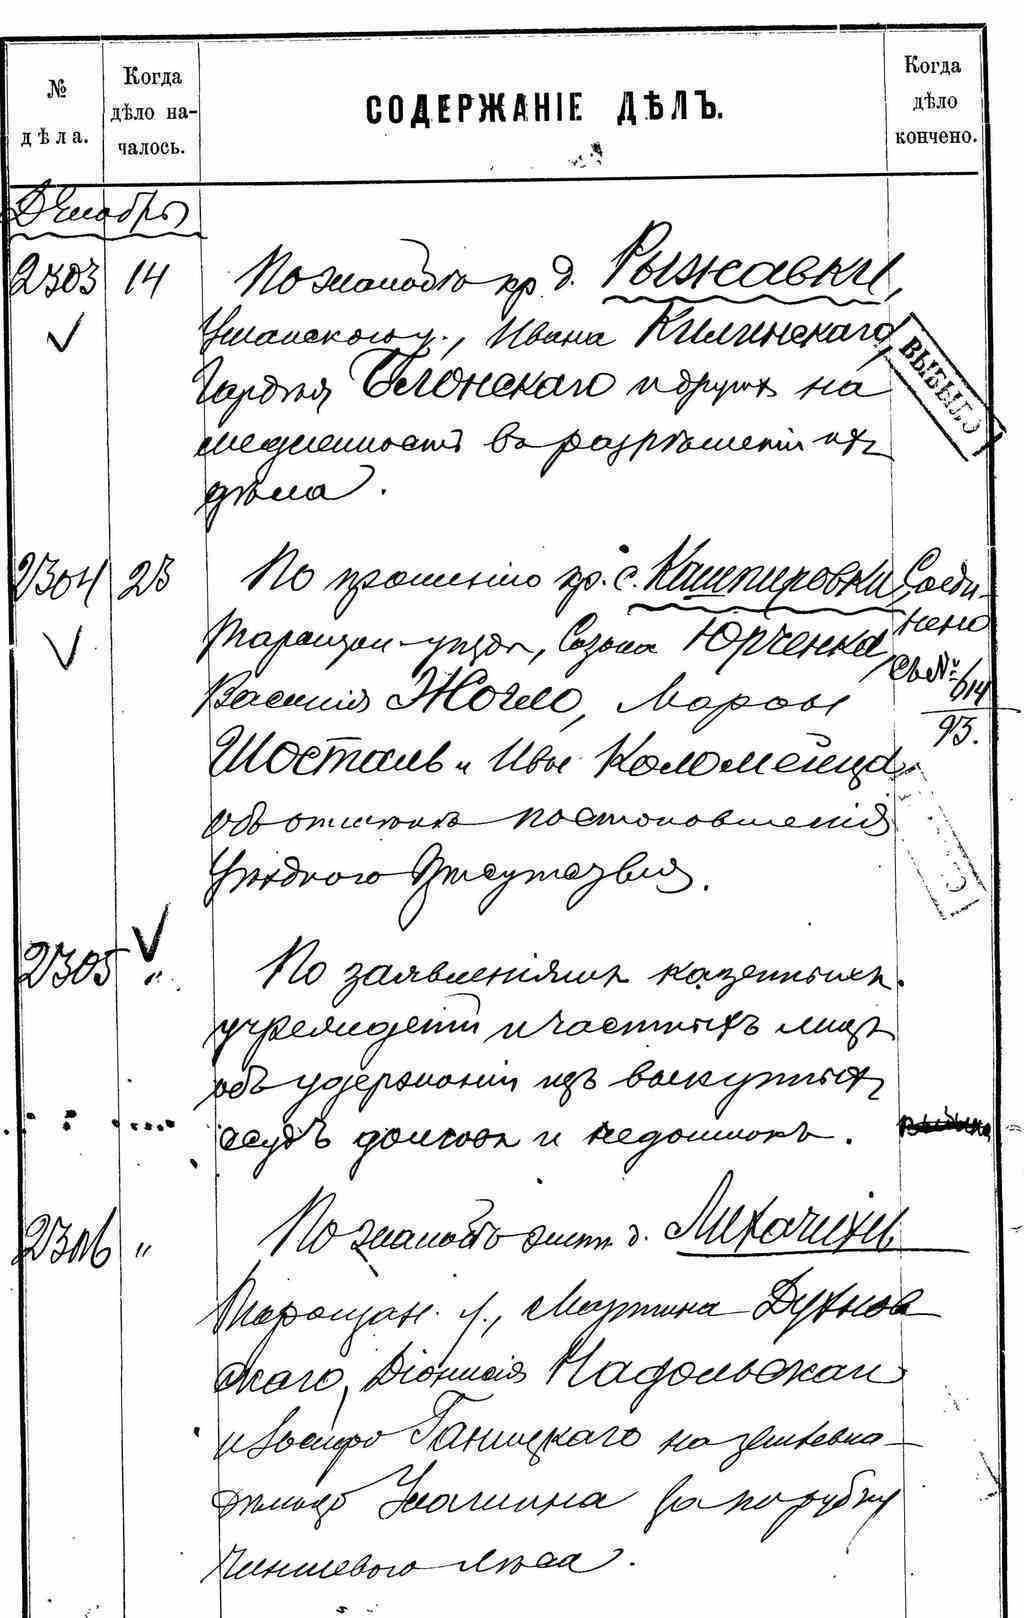 № дѣла.
Когда дѣло началось.
СОДЕРЖАНІЕ ДѢЛЪ.
Когда дѣло кончено.
Декабрь
2303 14 По жалобѣ кр. д. Рыжавки,
Уманского у., Ивана Килинскаго,
Бѣлонскаго и другихъ на
ВЫБЫЛО
медленность въ разрѣшеніи ихъ
дѣла.
2304 23 По прошенію кр. с. Кашперовки,
Соеди-
Таращан. уѣзда, Созона Юрченка,
нено
Василія Жогло,
съ №
614
93.
Шосталь и Ивы Коломейца
объ отмѣнѣ постановленія
Уѣздного Присутствія.
2305 " По заявленіямъ казенныхъ
учрежденій и частныхъ лицъ
объ удержаніи изъ выкупныхъ
ссудъ долговъ и недоимокъ.
2306 " По жалобѣ д. Лихачихи
Таращан. у., Мартина Духнов
скаго, Діонисія Надольскаго
и Іосифа Ганицкаго на землевла-
дѣльца за порубку
чиншевого лѣса.